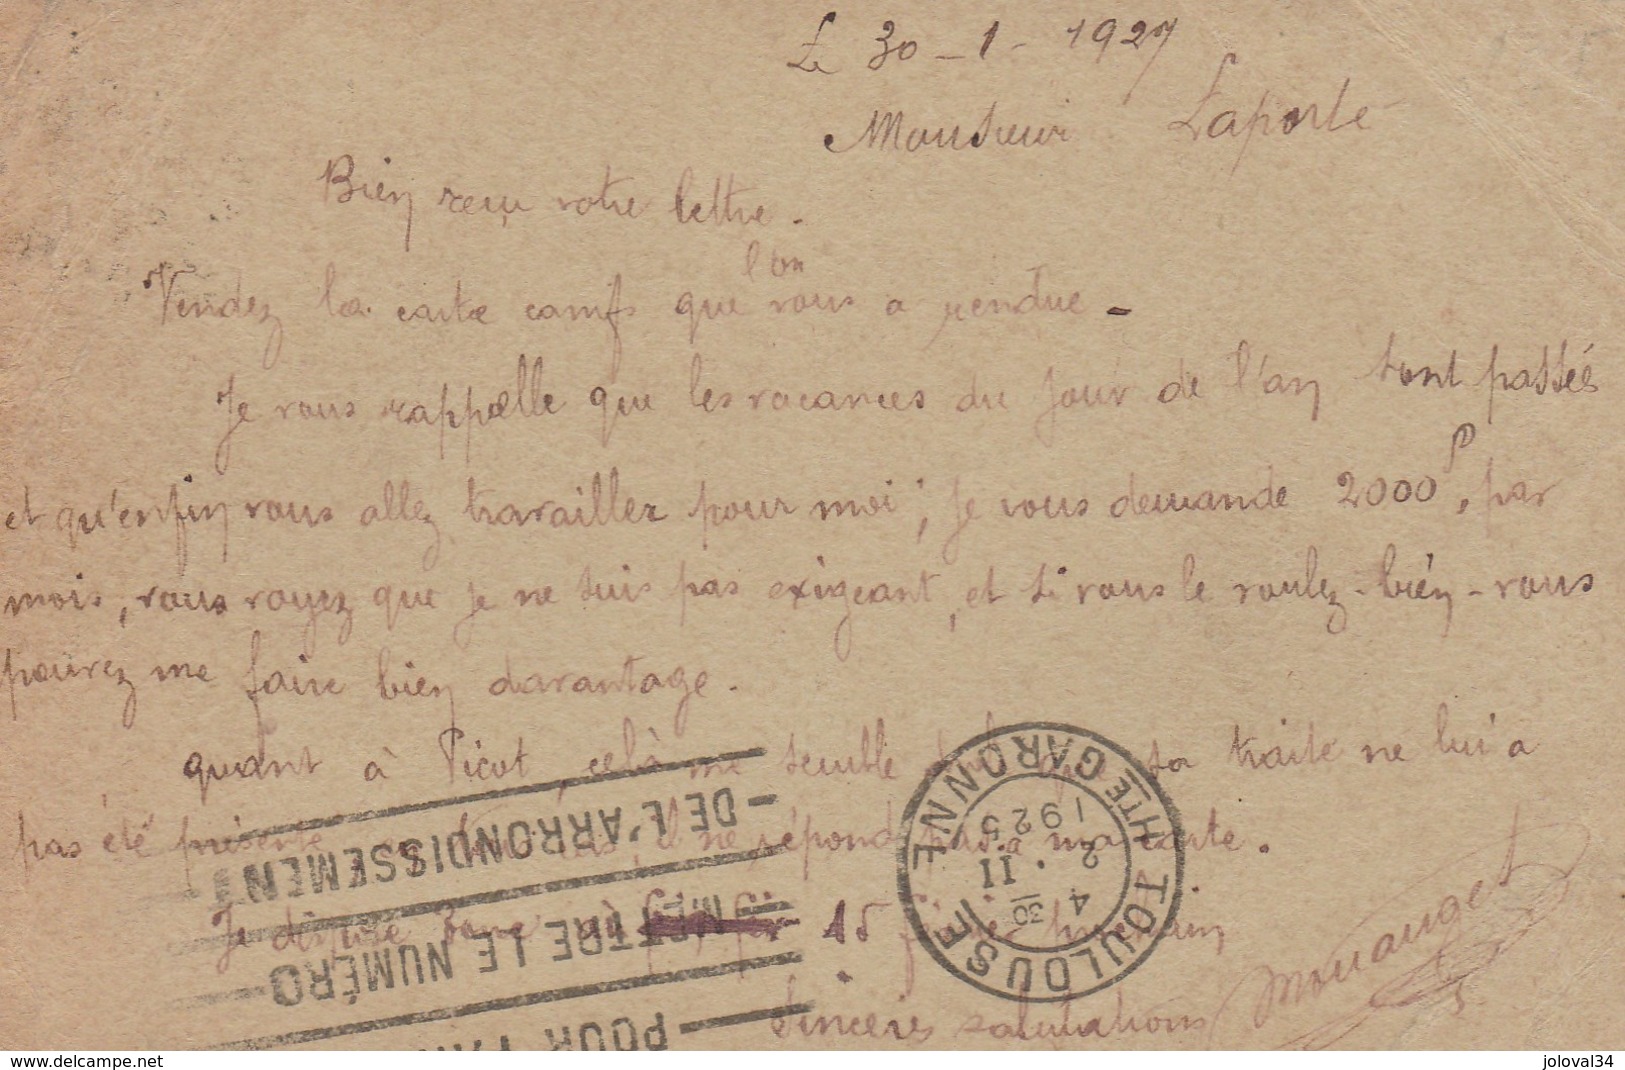 Le 30 - 1 - 1927
Monsieur Laporte
Bien reçu votre lettre.
l'on
Vendez la carte camfs que vous a rendue -
Je vous rappelle que les vacances du jour de l'an sont passées
et qu'enfin vous allez travailler pour moi ; je vous demande 2000 F, par
mois, vous voyez que je ne suis pas exigeant, et si vous le voulez - bien - vous
pourez me faire bien davantage.
quant à Picot, celà me semble sa traite ne lui a
pas été présenté il ne répond pas à ma carte.
Je 15 prochain
Sincères salutations Mouanget
TOULOUSE HTE GARONNE
4 30
2 . II
1925
POUR
METTRE LE NUMÉRO
DE L'ARRONDISSEMENT
www.delcampe.net
joloval34